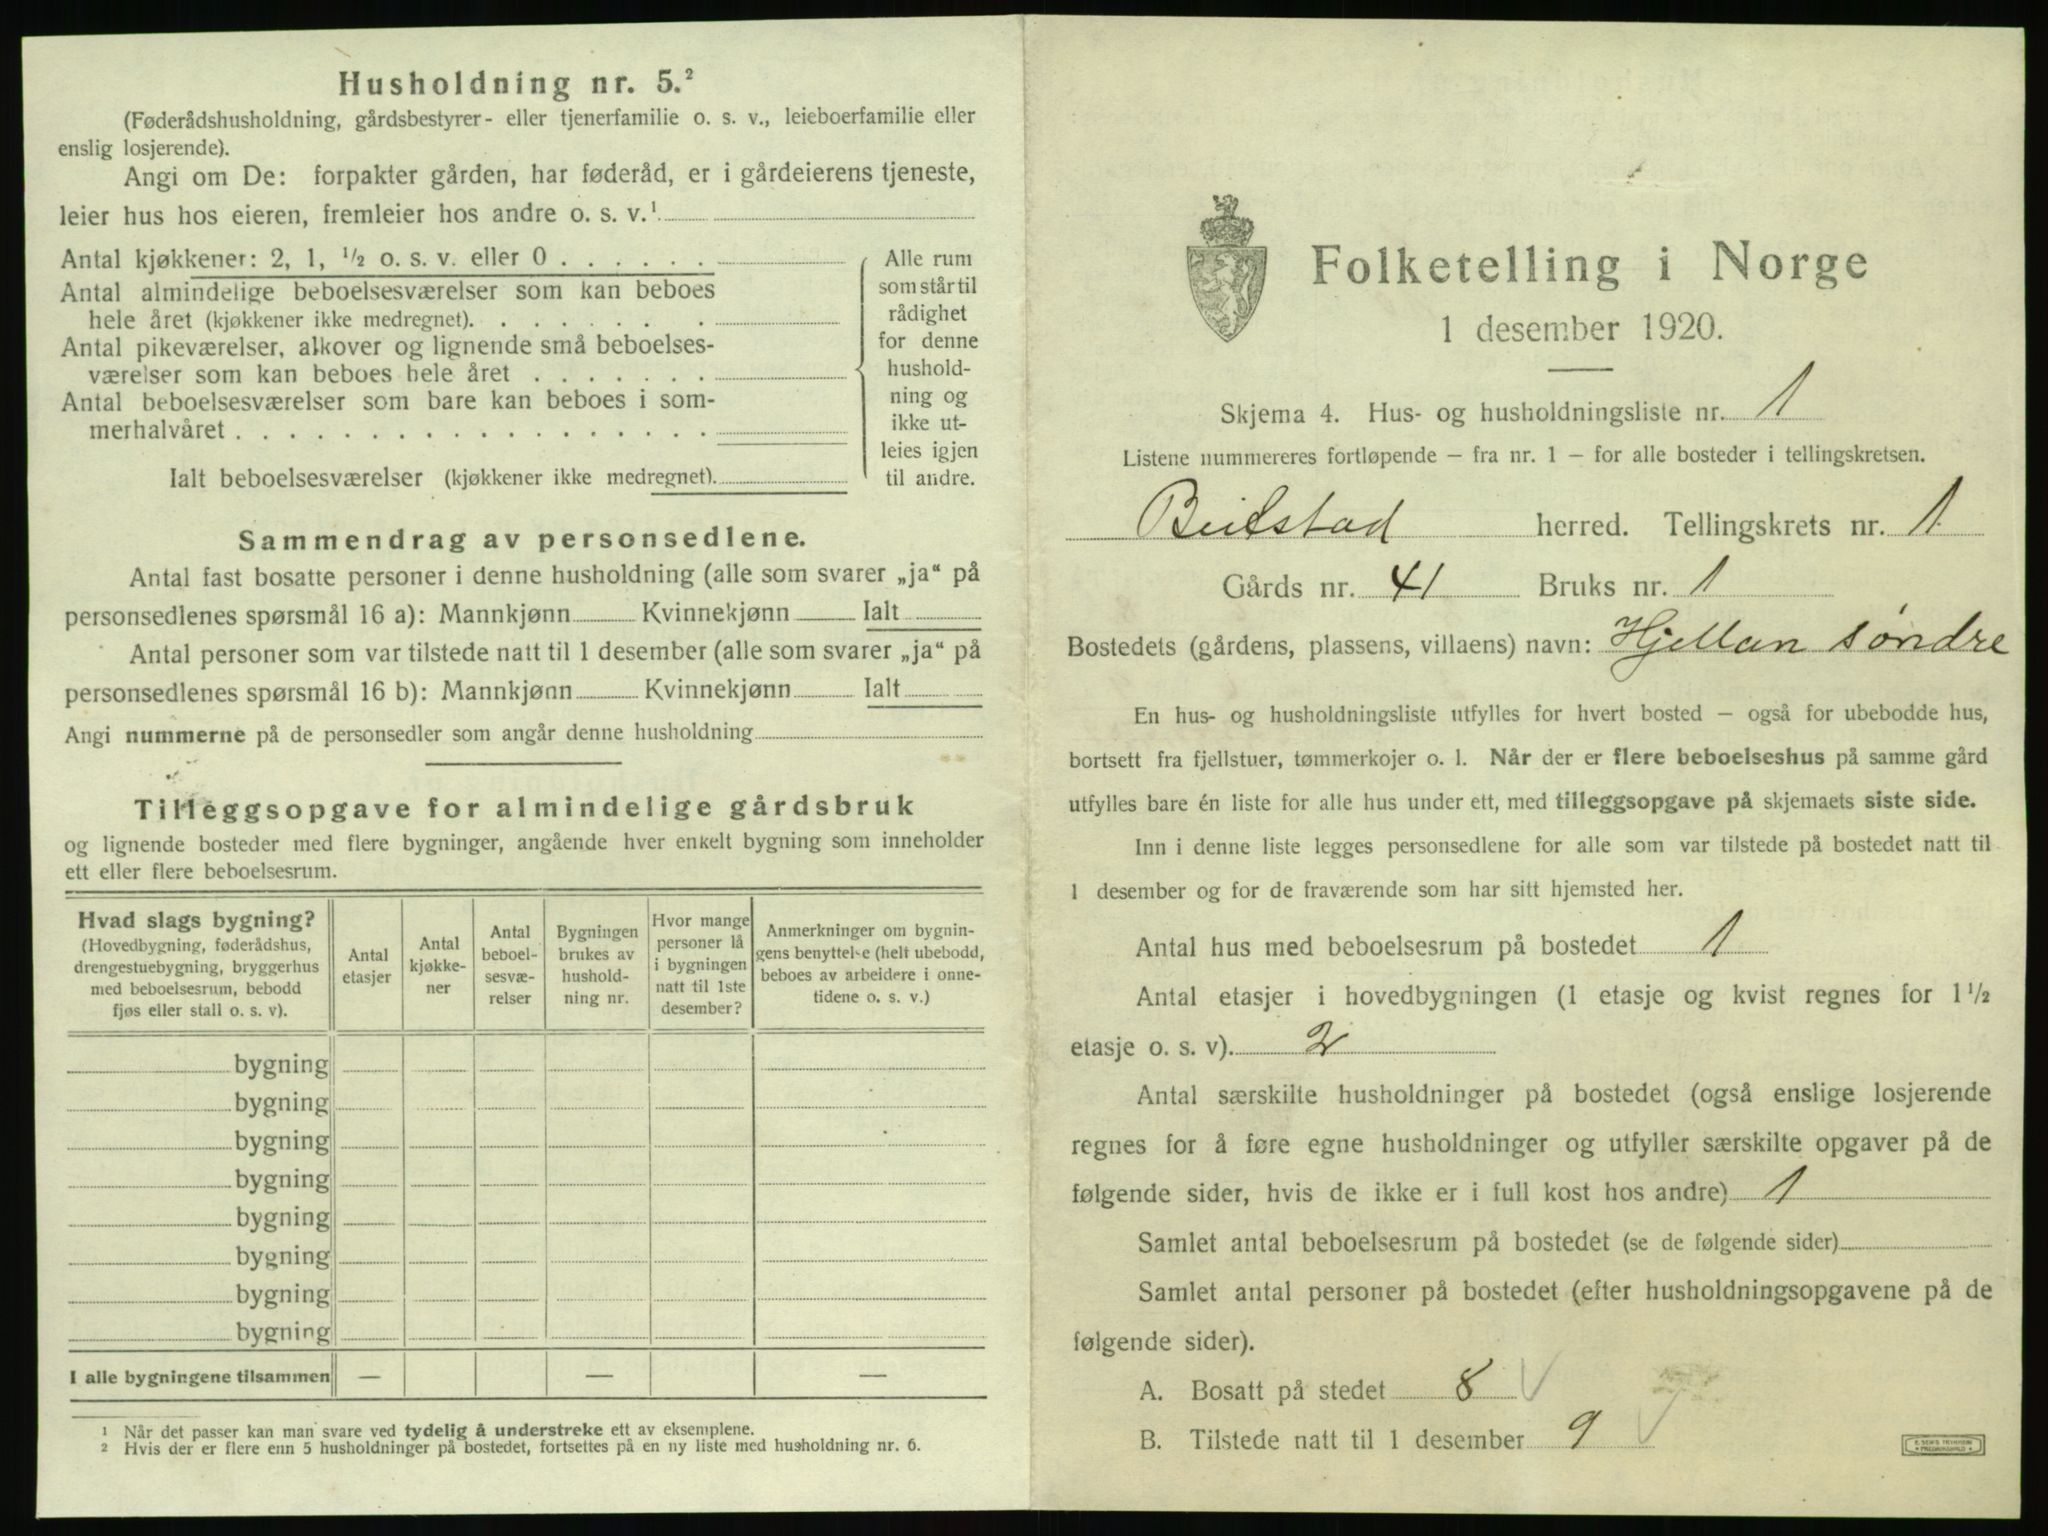 Husholdning nr. 5.²
(Føderådshusholdning, gårdsbestyrer- eller tjenerfamilie o. s. v., leieboerfamilie eller
enslig losjerende).
Angi om De: forpakter gården, har føderåd, er i gårdeierens tjeneste,
leier hus hos eieren, fremleier hos andre o. s. v.¹
Antal kjøkkener: 2, 1, ½ o. s. v. eller 0 . . . . . .
Antal almindelige beboelsesværelser som kan beboes
hele året (kjøkkener ikke medregnet). . . . . . . .
Antal pikeværelser, alkover og lignende små beboelses-
værelser som kan beboes hele året . . . . . . .
Antal beboelsesværelser som bare kan beboes i som-
merhalvåret . . . . . . . . . . . . . . . . . .
Ialt beboelsesværelser (kjøkkener ikke medregnet).
Alle rum
som står til
rådighet
for denne
hushold-
ning og
ikke ut-
leies igjen
til andre.
Sammendrag av personsedlene.
Antal fast bosatte personer i denne husholdning (alle som svarer „ja“ på
personsedlenes spørsmål 16 a): Mannkjønn Kvinnekjønn Ialt
Antal personer som var tilstede natt til 1 desember (alle som svarer „ja“ på
personsedlenes spørsmål 16 b): Mannkjønn Kvinnekjønn Ialt
Angi nummerne på de personsedler som angår denne husholdning
Tilleggsopgave for almindelige gårdsbruk
og lignende bosteder med flere bygninger, angående hver enkelt bygning som inneholder
ett eller flere beboelsesrum.
Hvad slags bygning?
(Hovedbygning, føderådshus,
drengestuebygning, bryggerhus
med beboelsesrum, bebodd
fjøs eller stall o. s. v).
Antal
etasjer
Antal
kjøkke-
ner
Antal
beboel-
sesvæ-
relser
Bygningen
brukes av
hushold-
ning nr.
Hvor mange
personer lå
i bygningen
natt til 1ste
desember?
Anmerkninger om bygnin-
gens benyttelse (helt ubebodd,
beboes av arbeidere i onne-
tidene o. s. v.)
bygning
bygning
bygning
bygning
bygning
bygning
bygning
bygning
I alle bygningene tilsammen — — —
¹ Når det passer kan man svare ved tydelig å understreke ett av eksemplene.
² Hvis der er flere enn 5 husholdninger på bostedet, fortsettes på en ny liste med husholdning nr. 6.
Folketelling i Norge
1 desember 1920.
Skjema 4. Hus- og husholdningsliste nr. 1
Listene nummereres fortløpende – fra nr. 1 – for alle bosteder i tellingskretsen.
Beitstad herred. Tellingskrets nr. 1
Gårds nr. 41 Bruks nr. 1
Bostedets (gårdens, plassens, villaens) navn: Hjellan søndre
En hus- og husholdningsliste utfylles for hvert bosted – også for ubebodde hus,
bortsett fra fjellstuer, tømmerkojer o. l. Når der er flere beboelseshus på samme gård
utfylles bare én liste for alle hus under ett, med tilleggsopgave på skjemaets siste side.
Inn i denne liste legges personsedlene for alle som var tilstede på bostedet natt til
1 desember og for de fraværende som har sitt hjemsted her.
Antal hus med beboelsesrum på bostedet 1
Antal etasjer i hovedbygningen (1 etasje og kvist regnes for 1½
etasje o. s. v). 2
Antal særskilte husholdninger på bostedet (også enslige losjerende
regnes for å føre egne husholdninger og utfyller særskilte opgaver på de
følgende sider, hvis de ikke er i full kost hos andre) 1
Samlet antal beboelsesrum på bostedet (se de følgende sider)
Samlet antal personer på bostedet (efter husholdningsopgavene på de
følgende sider).
A. Bosatt på stedet 8
B. Tilstede natt til 1 desember 9